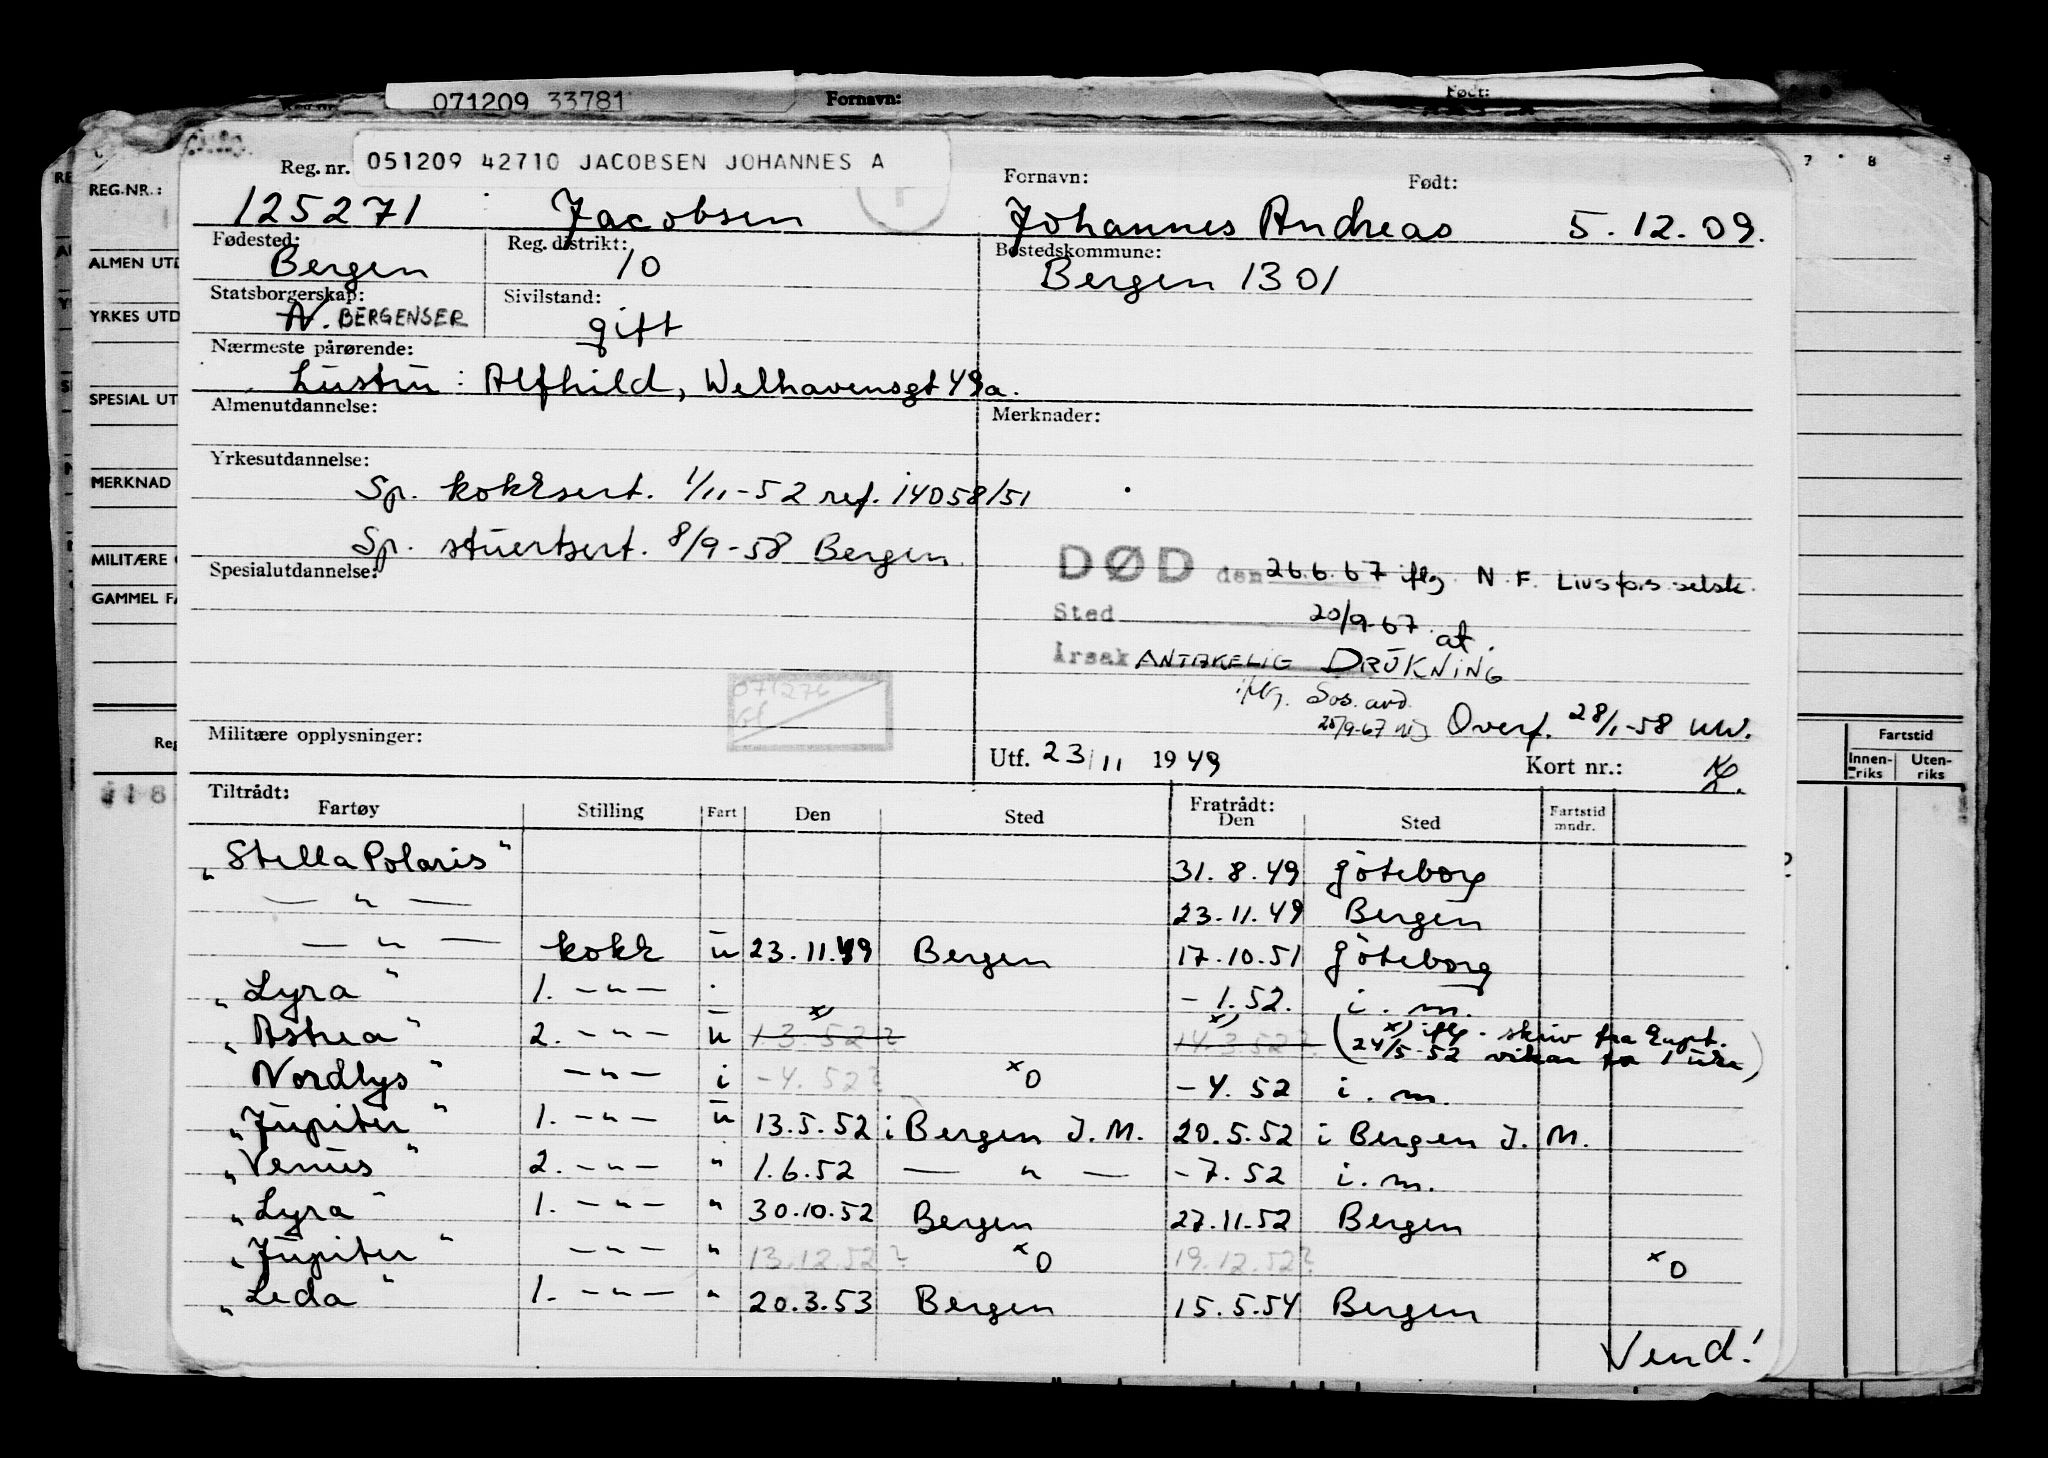 071209 33781 Fornavn: Født:
Reg. nr. 051209 42710 JACOBSEN JOHANNES A Fornavn: Født:
125271 Jacobsen Johannes Andreas 5.12.09.
Fødested: Reg. distrikt: Bostedskommune:
Bergen 10 Bergen 1301
Statsborgerskap: Sivilstand:
N. BERGENSER gift
Nærmeste pårørende:
Hustru: Alfhild, Welhavensgt 49a.
Almenutdannelse: Merknader:
Yrkesutdannelse:
Sp. kokksert. 1/11-52 ref. 14058/51
Sp. stuertsert. 8/9-58 Bergen
Spesialutdannelse:
DØD den 26.6.67 iflg. N.F. Livsfors.selsk.
Sted 20/9-67 at.
Årsak ANTAKELIG DRUKNING
iflg. Sos. avd.
20/9-67 Overf. 28/1-58
071276
Militære opplysninger:
Utf. 23/11 1949 Kort nr.:
Tiltrådt: Fratrådt:
Fartøy Stilling Fart Den Sted Den Sted Fartstid mndr.
"Stella Polaris" 31.8.49 Göteborg
— " — 23.11.49 Bergen
— " — kokk u 23.11.49 Bergen 17.10.51 Göteborg
"Lyra" 1. -"- - 1.52. i.m.
"Astrea" 2. -"- u 13.52? x) 14.3.52? x) (x) iflg. skriv fra Eupt.
24/5-52 vikar på 1 uke)
Nordlys" -"- i -4.52? xo -4.52 i.m.
"Jupiter" 1. -"- u 13.5.52 i Bergen J.M. 20.5.52 i Bergen J.M.
"Venus" 2. -"- " 1.6.52 — " — -7.52 i.m.
"Lyra" 1. -"- " 30.10.52 Bergen 27.11.52 Bergen
"Jupiter" -"- " 13.12.52? xo 19.12.52? xo
"Leda" 1. -"- " 20.3.53 Bergen 15.5.54 Bergen
Vend!
REG.NR.:
ALMEN UTD
YRKES UTD
SPESIAL UT
MERKNAD
MILITÆRE
GAMMEL FA
Reg
7 8
Fartstid
Innen-riks Uten-riks